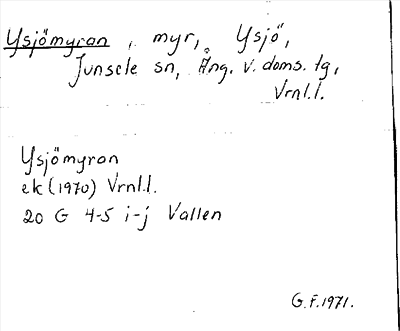 Ysjömyran, myr, Ysjö,
Junsele sn, Ång. v. doms. tg,
Vrnl.l.
Ysjömyran
ek (1970) Vrnl.l.
20 G 4-5 i-j Vallen
G.F. 1971.